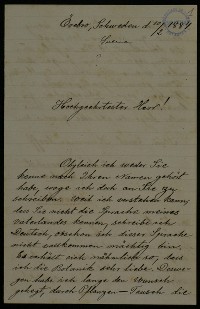 Örebro, Schweden d. 20/2 1884
Hochgeehrtester Herr!
Obgleich ich weder Sie
kenne noch Ihren Namen gehört
habe, wage ich doch an Sie zu
schreiben. Weil ich verstehen kann,
dass Sie nicht die Sprache meines
Vaterlandes kennen, schreibe ich
Deutsch, obschon ich dieser Sprache
nicht vollkommen mächtig bin.
Es verhält sich nähmlich so, dass
ich die Botanik sehr liebe. Deswe-
gen habe ich lange den Wunsch
gehegt, durch Pflanzen-Tausch die